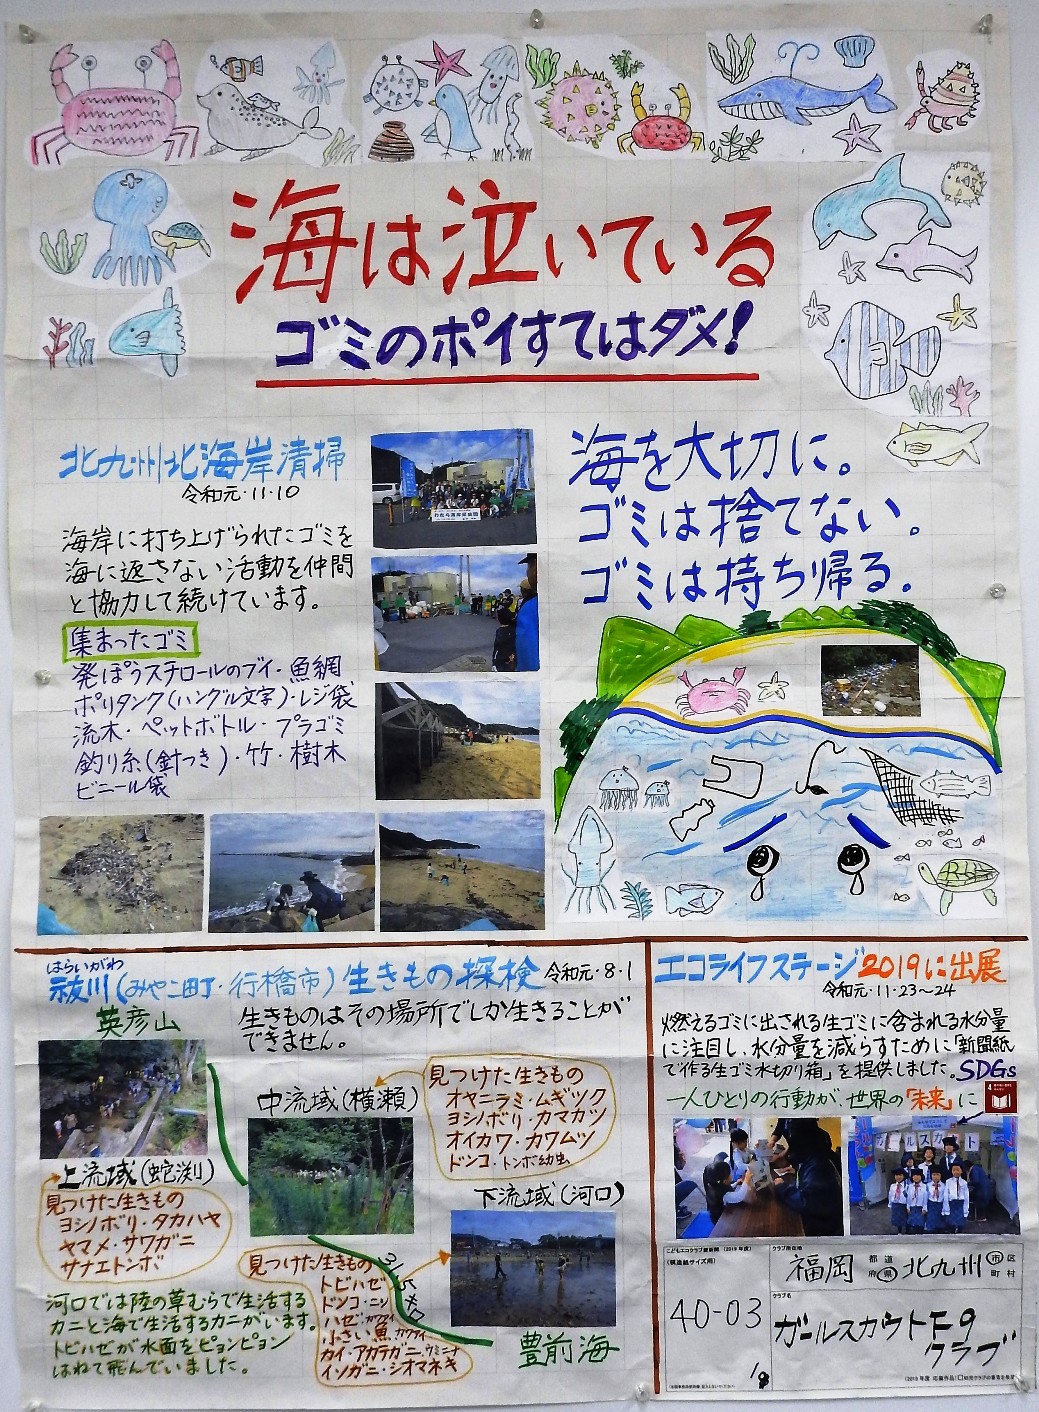 海は泣いている
ゴミのポイすてはダメ!
北九州北海岸清掃
令和元・11・10
海岸に打ち上げられたゴミを
海に返さない活動を仲間
と協力して続けています。
集まったゴミ
発ぽうスチロールのブイ・魚網
ポリタンク(ハングル文字)・レジ袋
流木・ペットボトル・プラゴミ
釣り糸(針つき)・竹・樹木
ビニール袋
海を大切に。
ゴミは捨てない。
ゴミは持ち帰る。
はらいがわ
祓川(みやこ町・行橋市)生きもの探検 令和元・8・1
英彦山
生きものはその場所でしか生きることが
できません。
上流域(蛇渕)
見つけた生きもの
ヨシノボリ・タカハヤ
ヤマメ・サワガニ
サナエトンボ
中流域(横瀬)
見つけた生きもの
オヤニラミ・ムギツク
ヨシノボリ・カマツカ
オイカワ・カワムツ
ドンコ・トンボ幼虫
下流域(河口)
見つけた生きもの
トビハゼ
ドンコ・ニシ
ハゼ・カワアイ
小さい魚
カイ・アカテガニ・ウミニナ
イソガニ・シオマネキ
豊前海
河口では陸の草むらで生活する
カニと海で生活するカニがいます。
トビハゼが水面をピョンピョン
はねて飛んでいました。
エコライフステージ2019に出展
令和元・11・23~24
燃えるゴミに出される生ゴミに含まれる水分量
に注目し、水分量を減らすために「新聞紙
で作る生ゴミ水切り箱」を提供しました。SDGs
一人ひとりの行動が、世界の「未来」に
4
ガールスカウト
こどもエコクラブ壁新聞(2019年度)
(模造紙サイズ用)
40-03
クラブ所在地
福岡 都道府県 北九州 市区町村
クラブ名
ガールスカウトF9
クラブ